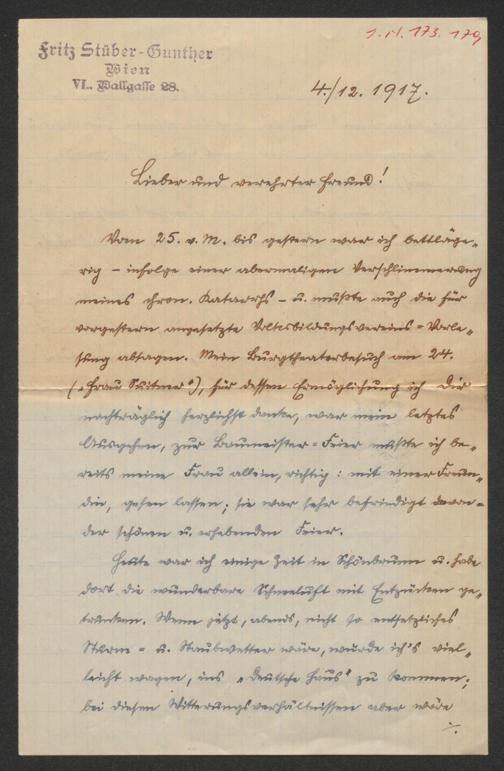 Fritz Stüber-Gunther
Wien
VI., Wallgasse 28.
4./12. 1917.
Lieber und verehrter Freund!
Vom 25. v. M. bis gestern war ich bettläge-
rig – infolge einer abermaligen Verschlimmerung
meines chron. Katarrhs – u. mußte auch die für
vorgestern angesetzte Volksbildungsvereins-Vorle-
sung absagen. Mein Burgtheaterbesuch am 24.
(„Frau Suitner“), für dessen Ermöglichung ich Dir
nachträglich herzlichst danke, war mein letztes
Ausgehen, zur Baumeister-Feier mußte ich be-
reits meine Frau allein, richtig: mit einer Freun-
din, gehen lassen; sie war sehr befriedigt von
der schönen u. erhebenden Feier.
Heute war ich einige Zeit in Schönbrunn u. habe
dort die wunderbare Schneeluft mit Entzücken ge-
trunken. Wenn jetzt, abends, nicht so entsetzliches
Sturm- u. Staubwetter wäre, würde ich's viel-
leicht wagen, ins „Deutsche Haus“ zu kommen;
bei diesen Witterungsverhältnissen aber wäre
./.